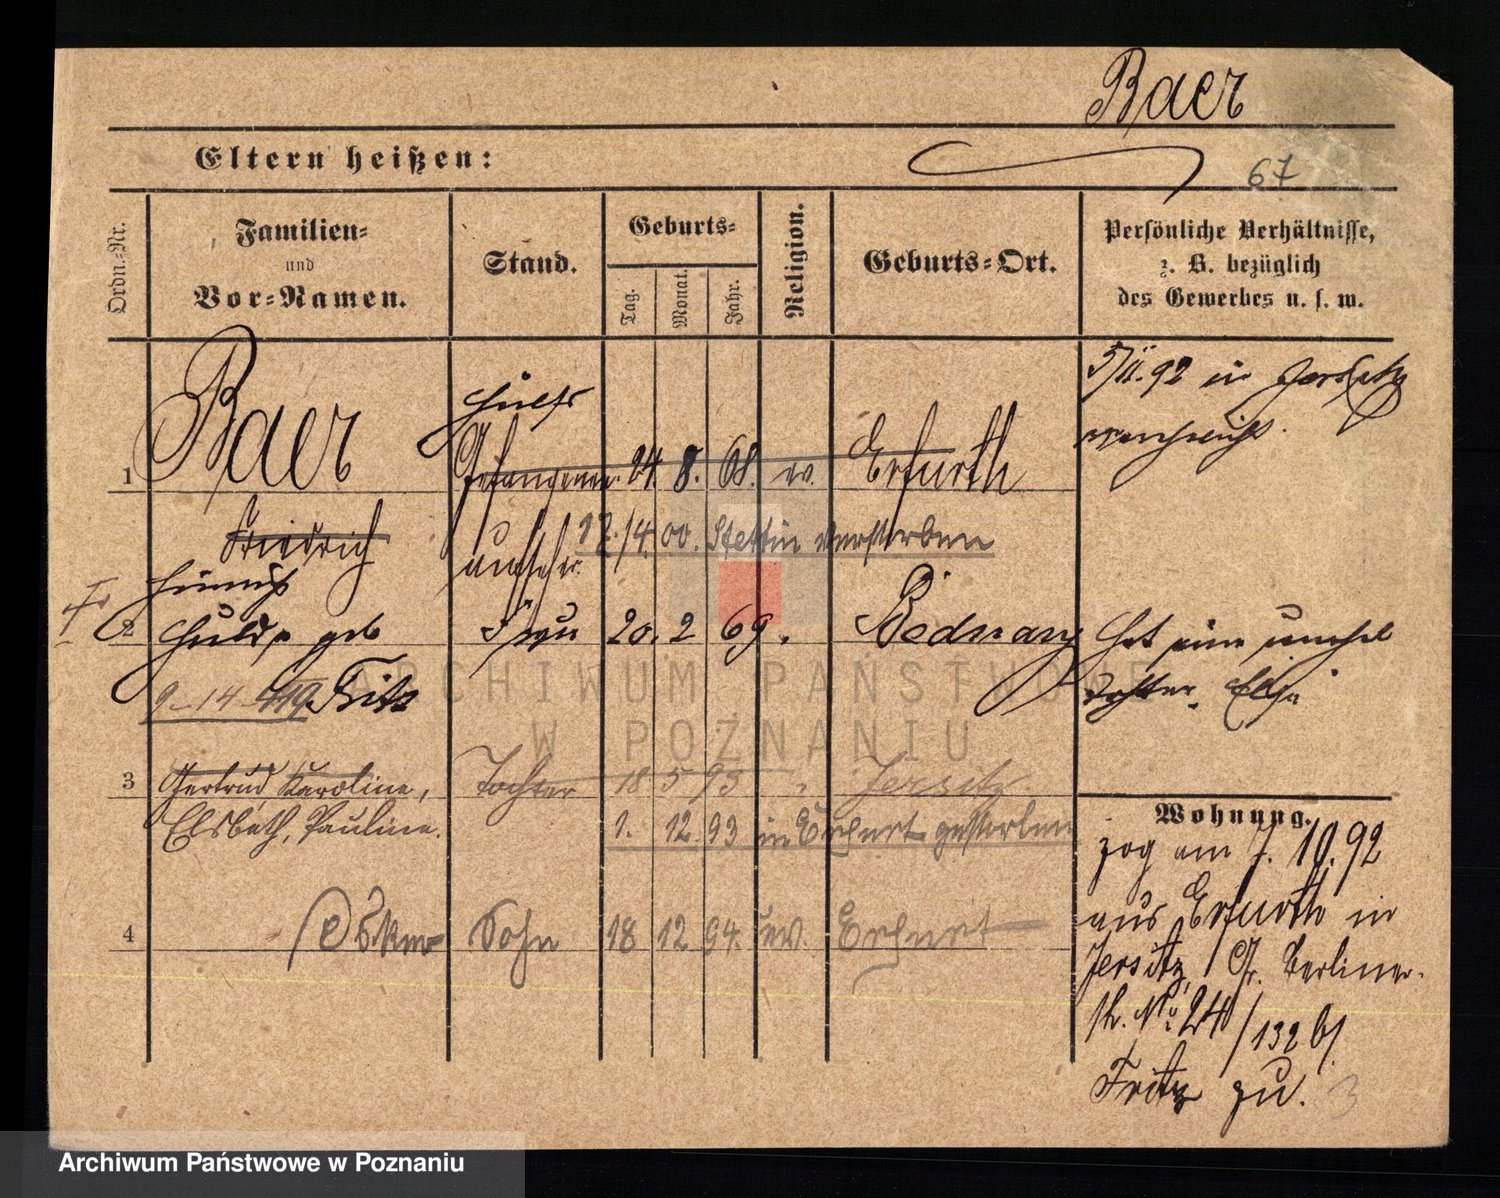 Baer
Eltern heißen:
67
Ordn.-Nr.
Familien-
und
Vor-Namen.
Stand.
Geburts-
Tag.
Monat.
Jahr.
Religion.
Geburts-Ort.
Persönliche Verhältnisse,
z. B. bezüglich
des Gewerbes u. s. w.
5/11.92 in
1 Baer Hülfs
Gefangenen 24. 8. 68. ev. Erfurth
Friedrich aufseher 12./4. 00. Stettin verstorben
Heinrich
2 Hulda geb Frau 20. 2 69. Bednarz
Hat eine unehel
Tochter Elsa
9-14 Fritz
ARCHIWUM PAŃSTWOWE
W POZNANIU
3 Gertrud Karoline, Tochter 18 5 93 " Jersitz.
Elsbeth, Pauline. 1. 12. 93 in gestorben
4 Sohn 18 12 94. ev.
Wohnung.
zog am 7. 10. 92
aus Erfurth in
Jersitz, Gr. Berliner-
str. No 24/132 bei
Fritz zu. 3
Archiwum Państwowe w Poznaniu